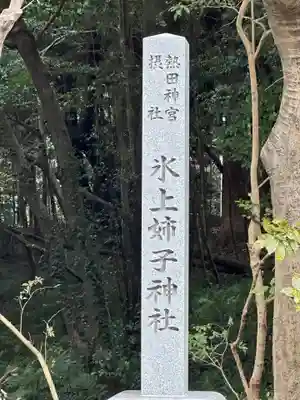 熱田神宮
摂社
氷上姉子神社